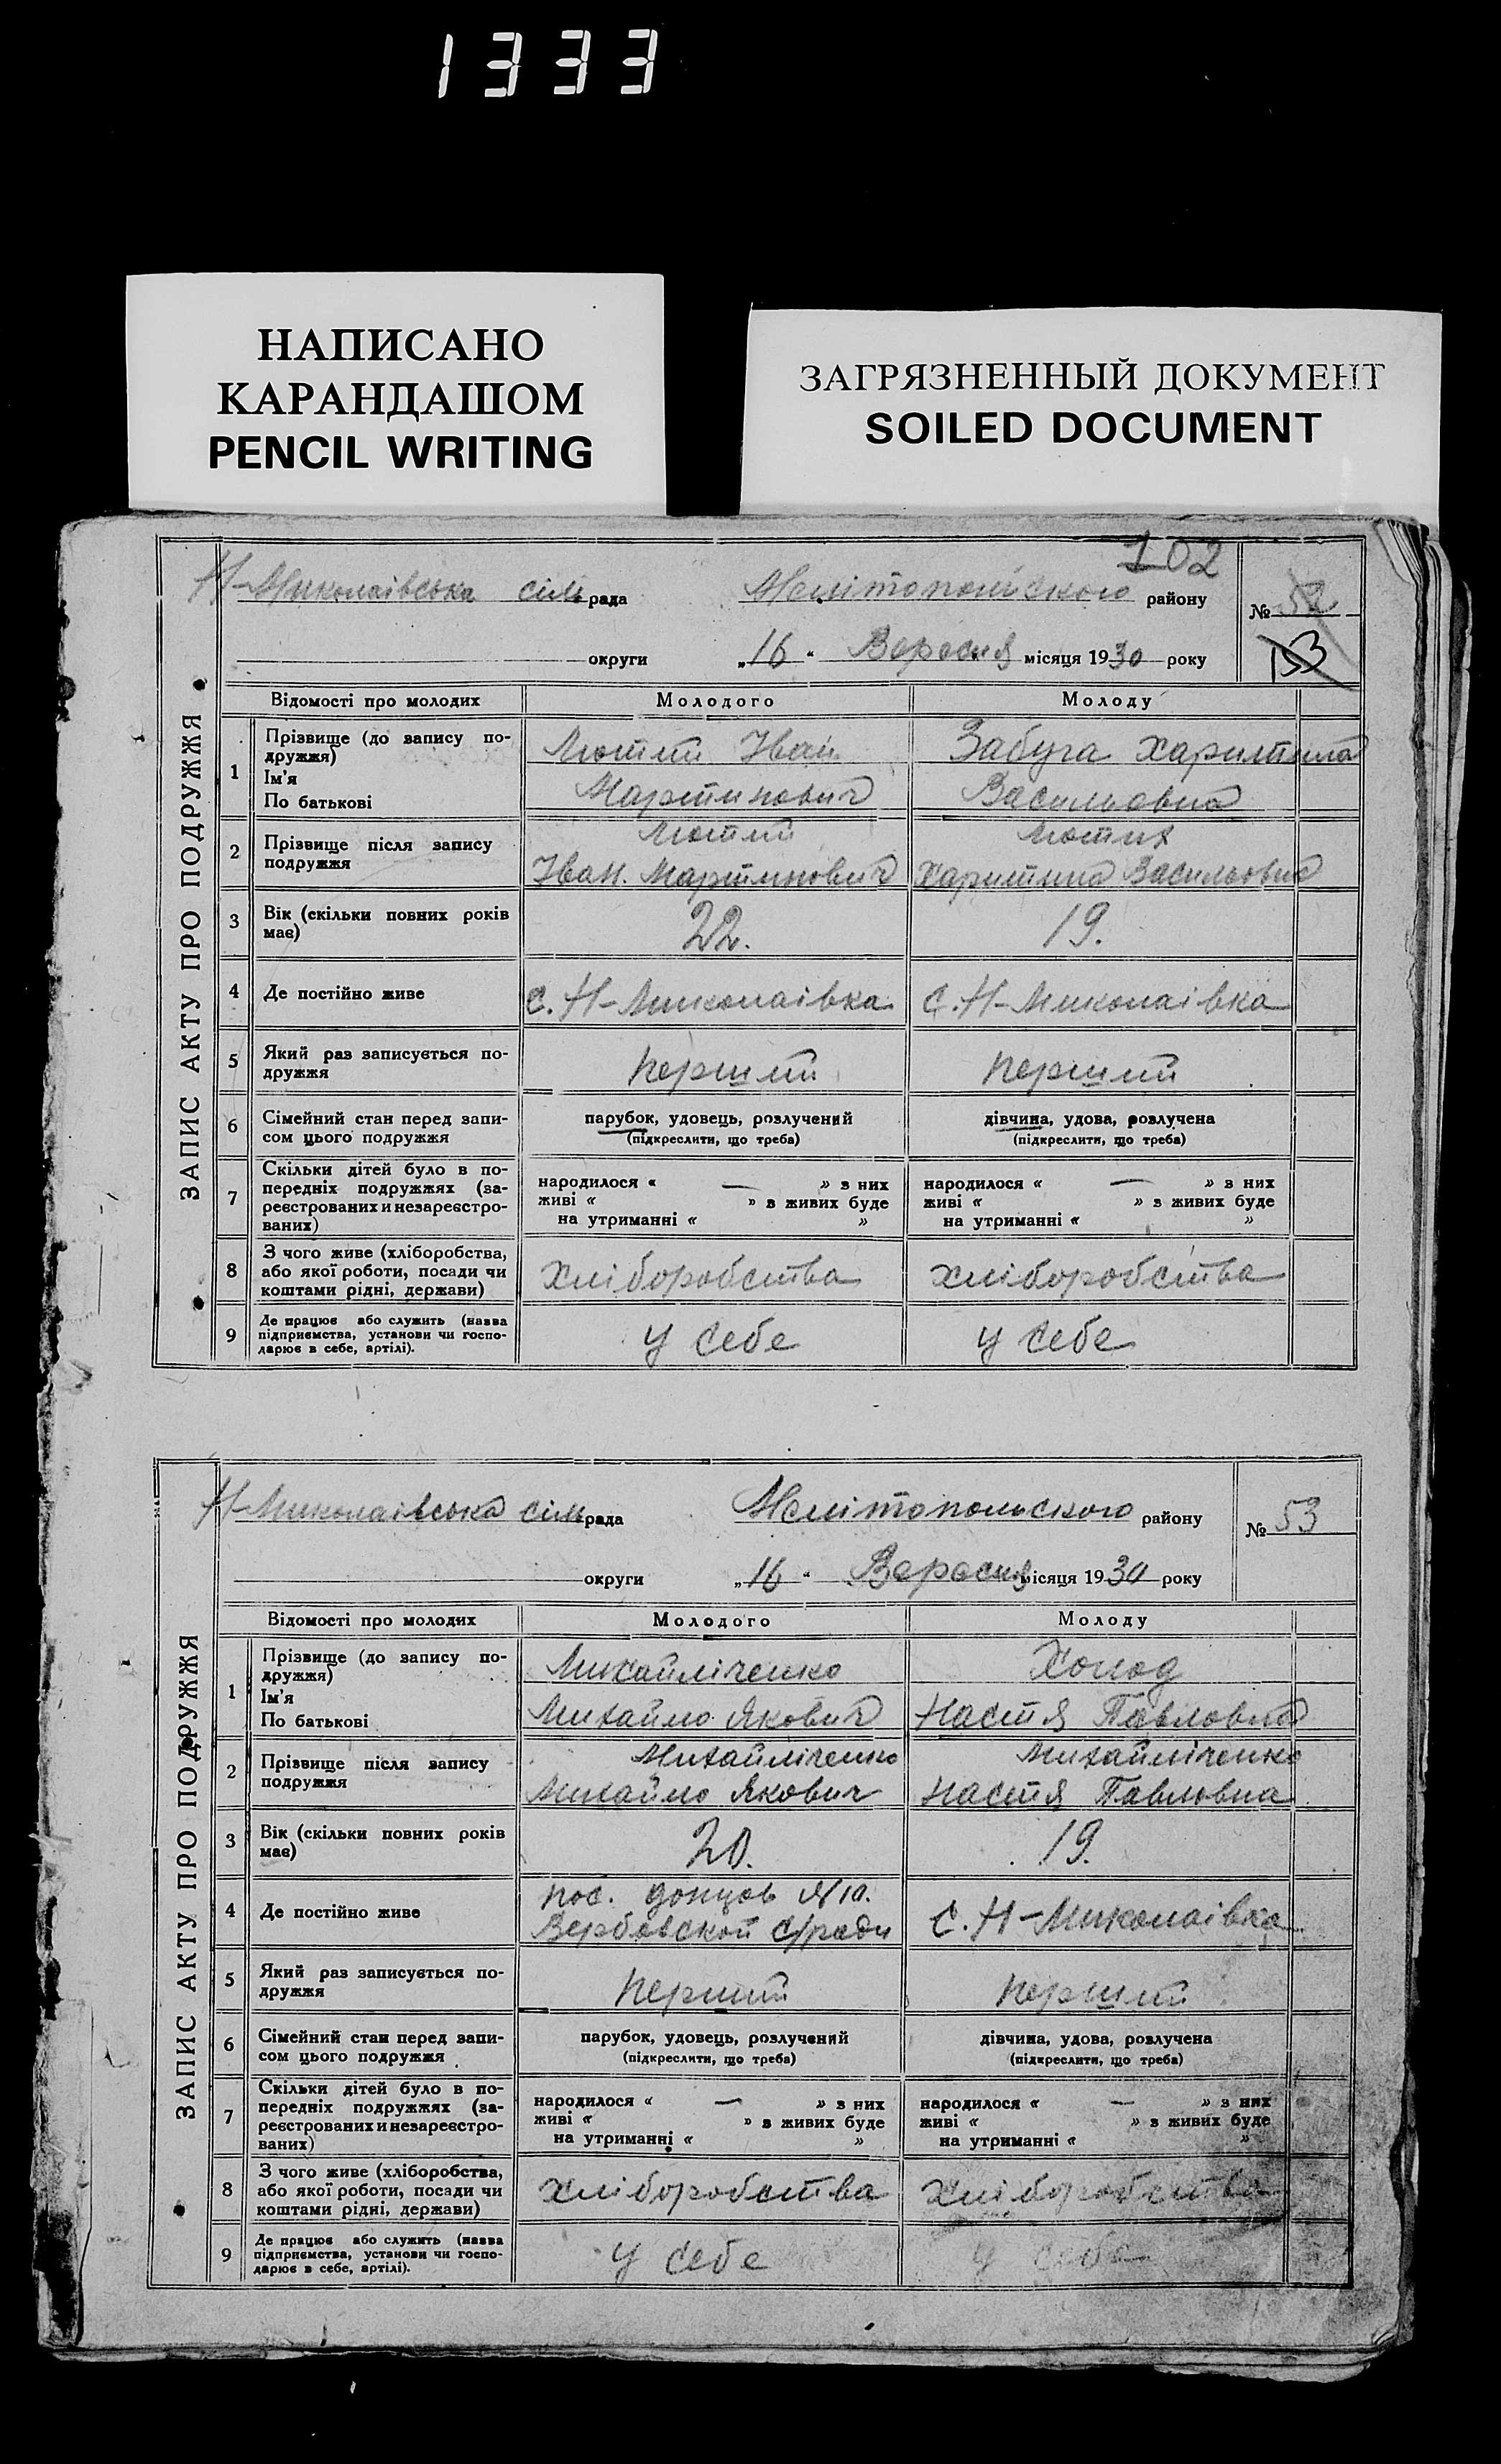 1333
НАПИСАНО
КАРАНДАШОМ
PENCIL WRITING
ЗАГРЯЗНЕННЫЙ ДОКУМЕНТ
SOILED DOCUMENT
102
Н-Миколаівська сільрада Мелітопольского району № 52
округи „16“ Вересня місяця 1930 року 153
ЗАПИС АКТУ ПРО ПОДРУЖЖЯ
Відомості про молодих Молодого Молоду
1 Прізвище (до запису подружжя) Лютий Іван Забуга Харитина
Ім'я
По батькові Мартинович Васильовна
2 Прізвище після запису Лютий Лютих
подружжя Іван. Мартинович Харитина Васильовна
3 Вік (скільки повних років має) 22. 19.
4 Де постійно живе с. Н-Миколаівка с. Н-Миколаівка
5 Який раз записується подружжя перший перший
6 Сімейний стан перед записом цього подружжя парубок, удовець, розлучений дівчина, удова, розлучена
(підкреслити, що треба) (підкреслити, що треба)
7 Скільки дітей було в попередніх подружжях (зареєстрованих и незареєстрованих) народилося « — » з них народилося « — » з них
живі « » з живих буде живі « » з живих буде
на утриманні « » на утриманні « »
8 З чого живе (хліборобства, або якої роботи, посади чи коштами рідні, держави) хліборобства хліборобства
9 Де працює або служить (назва підприємства, установи чи господарює в себе, артілі). у себе у себе
Н-Миколаівська сільрада Мелітопольского району № 53
округи „16“ Вересня місяця 1930 року
ЗАПИС АКТУ ПРО ПОДРУЖЖЯ
Відомості про молодих Молодого Молоду
1 Прізвище (до запису подружжя) Михайліченко Холод
Ім'я
По батькові Михайло Якович Настя Павловна
2 Прізвище після запису Михайліченко Михайліченко
подружжя Михайло Якович Настя Павловна
3 Вік (скільки повних років має) 20. 19.
4 Де постійно живе пос. Донцов с. Н-Миколаівка
Вербовской с/ради
5 Який раз записується подружжя перший перший
6 Сімейний стан перед записом цього подружжя парубок, удовець, розлучений дівчина, удова, розлучена
(підкреслити, що треба) (підкреслити, що треба)
7 Скільки дітей було в попередніх подружжях (зареєстрованих и незареєстрованих) народилося « — » з них народилося « — » з них
живі « » з живих буде живі « » з живих буде
на утриманні « » на утриманні « »
8 З чого живе (хліборобства, або якої роботи, посади чи коштами рідні, держави) хліборобства хліборобства
9 Де працює або служить (назва підприємства, установи чи господарює в себе, артілі). у себе у себе